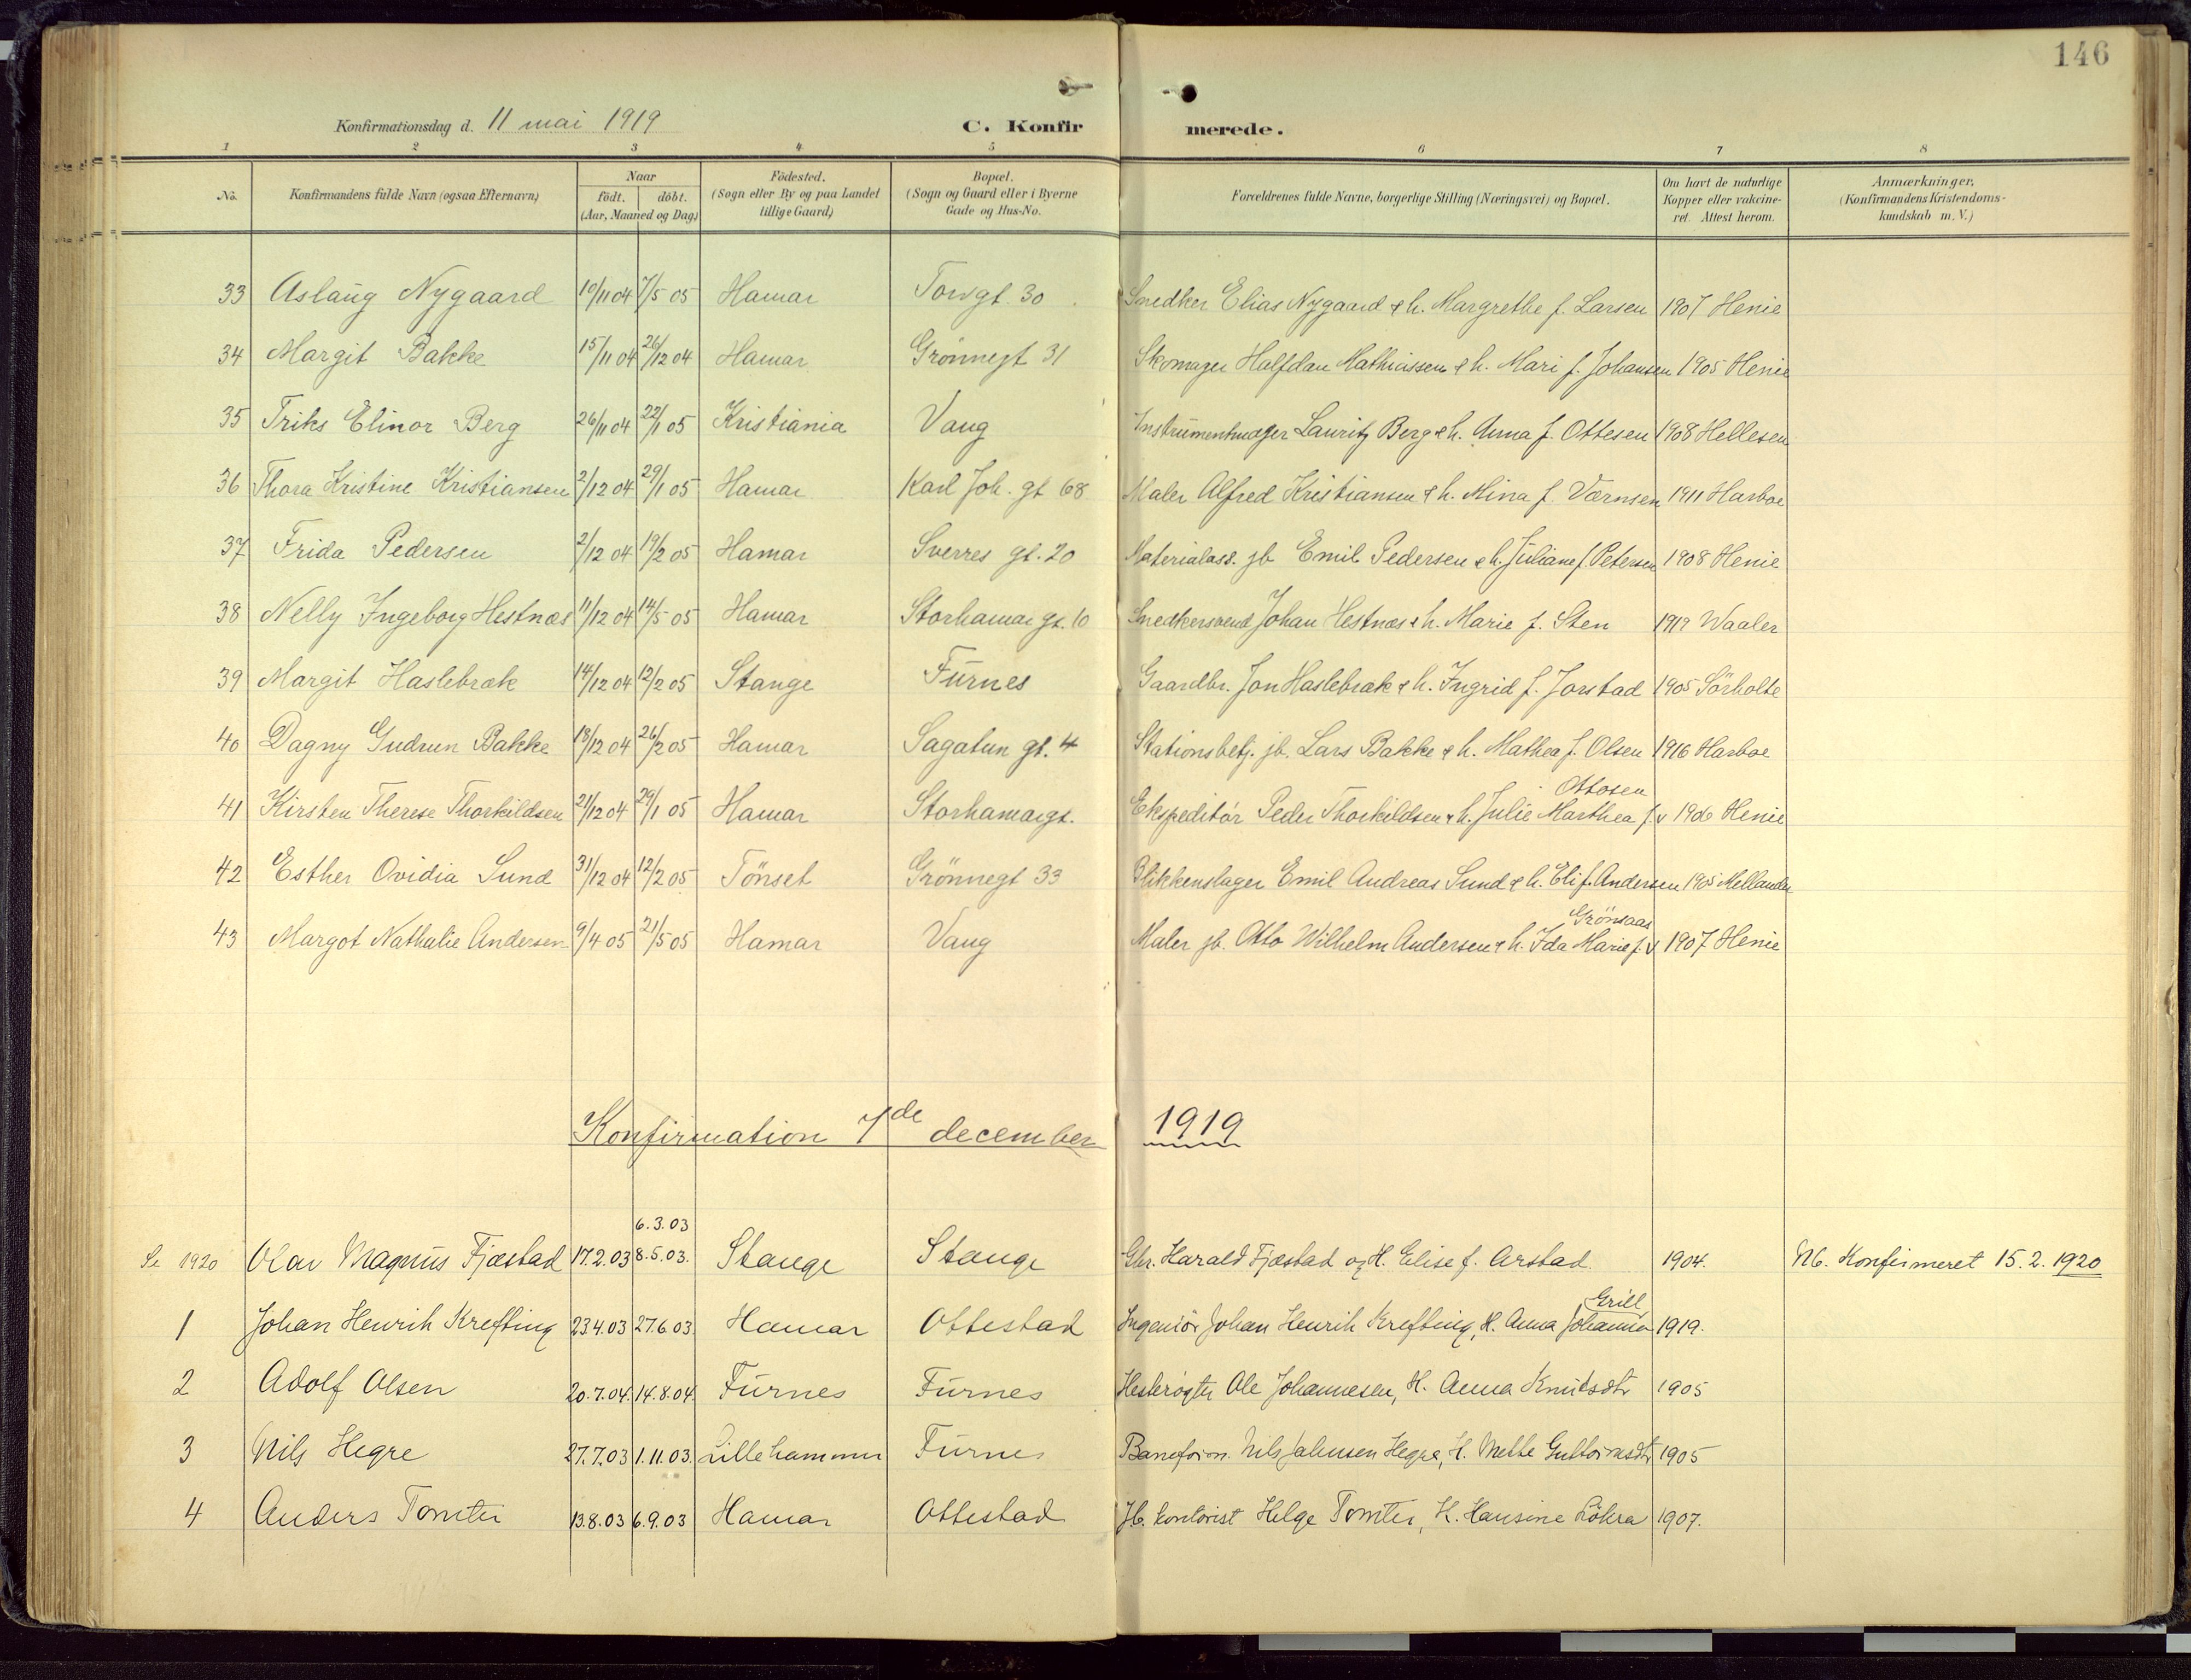 146
Konfirmationsdag d. 11 mai 1919 C. Konfir merede.
1 2 3 4 5 6 7 8
No. Konfirmandens fulde Navn (ogsaa Efternavn) Naar født. døbt. (Aar, Maaned og Dag) Födested. (Sogn eller By og paa Landet tillige Gaard) Bopæl. (Sogn og Gaard eller i Byerne Gade og Hus-No. Forældrenes fulde Navne, borgerlige Stilling (Næringsvei) og Bopæl. Om havt de naturlige Kopper eller vakcineret. Attest herom. Anmærkninger. (Konfirmandens Kristendomskundskab m. V.)
33 Aslaug Nygaard 10/11 04 7/5 05 Hamar Torvgt. 30 Snedker Elias Nygaard & h. Margrethe f. Larsen 1907 Henie
34 Margit Bakke 15/11 04 26/12 04 Hamar Grönnegt 31 Skomager Halfdan Mathiassen & h. Mari f. Johansen 1905 Henie
35 Triks Elinor Berg 26/11 04 22/1 05 Kristiania Vang Instrumentmager Lauritz Berg & h. Anna f. Ottesen 1908 Hellesen
36 Thora Kristine Kristiansen 2/12 04 29/1 05 Hamar Karl Joh. gt 68 Maler Alfred Kristiansen & h. Mina f. Værnsen 1911 Harboe
37 Frida Pedersen 2/12 04 19/2 05 Hamar Sverres gt. 20 Materialass. jb Emil Pedersen & h. Juliane f. Petersen 1908 Henie
38 Nelly Ingeborg Hestnæs 11/12 04 14/5 05 Hamar Storhamar gt. 10 Snedkersvend Johan Hestnæs & h. Marie f. Sten Waaler
39 Margit Haslebræk 14/12 04 12/2 05 Stange Furnes Gaardbr. Jon Haslebræk & h. Ingrid f. Jorstad 1905 Sörholte
40 Dagny Gudrun Bakke 18/12 04 26/2 05 Hamar Sagatun gt. 4 Stationsbetj. jb. Lars Bakke & h. Mathea f. Olsen 1916 Harboe
Ottosen
41 Kirsten Therese Thorkildsen 21/12 04 29/1 05 Hamar Storhamargt. Ekspeditör Peder Thorkildsen & h. Julie Marthea f. v 1906 Henie
42 Esther Ovidia Sund 31/12 04 12/2 05 Tönset Grönnegt 33 Blikkenslager Emil Andreas Sund & h. Eli f. Andersen 1905 Mellander
Grönsaas
43 Margot Nathalie Andersen 9/4 05 21/5 05 Hamar Vang Maler jb. Otto Wilhelm Andersen & h. Ida Marie f. v 1907 Henie
Konfirmation 7de december 1919
6.3.03
Se 1920 Olav Magnus Fjæstad 17.2.03 8.5.03. Stange Stange Gbr. Harald Fjæstad og H. Elise f. Arstad 1904. Nb. Konfirmeret 15.2.1920
Grill
1 Johan Henrik Krefting 23.4.03 27.6.03. Hamar Ottestad Ingeniör Johan Henrik Krefting, H. Anna Johanna 1919.
2 Adolf Olsen 20.7.04. 14.8.04. Furnes Furnes Hesterögter Ole Johannesen, H. Anna Knutsdtr 1905
3 Nils Hegre 27.7.03 1.11.03. Lillehammer Furnes Baneform. Nils Hegre, H. Mette Guttormsdtr 1905
4 Anders Tomter 13.8.03 6.9.03 Hamar Ottestad Jb. kontorist Helge Tomter, H. Hansine Lökra 1907.